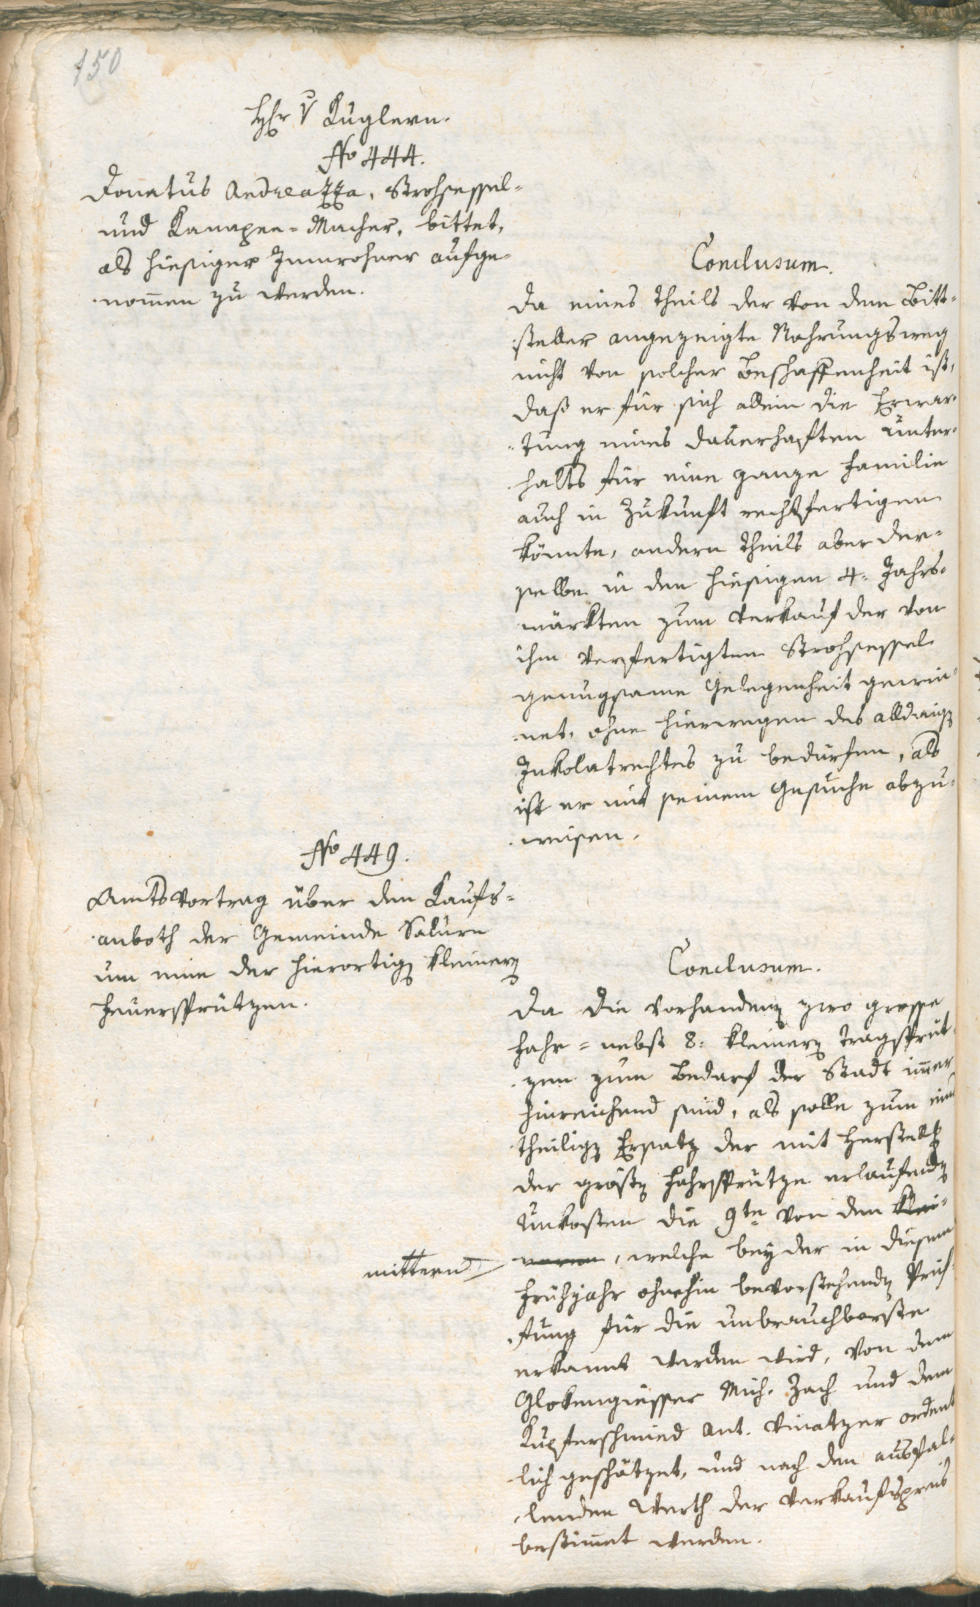 150
Hhr v Kuglern.
No 444.
Donatus Andreazza, Strohsessel-
und Kanapee-Macher, bittet,
als hiesiger Innwohner aufge-
nom̄en zu werden.
Conclusum.
Da eines Theils der von dem Bitt-
steller angezeigte Nahrungsweg
nicht von solcher Beschaffenheit ist,
daß er für sich allein die Erwar-
tung eines dauerhaften Unter-
halts für eine ganze Familie
auch in Zukunft rechtfertigen
könnte, andern Theils aber der-
selbe in den hiesigen 4. Jahrs-
märkten zum Verkauf der von
ihm verfertigten Strohsessel
genugsame Gelegenheit gewin-
net, ohne hierwegen des alldaig
Inkolatrechtes zu bedürfen, als
ist er mit seinem Gesuche abzu-
weisen.
No 449.
Amtsvortrag über den Kaufs-
anboth der Gemeinde Salurn
um eine der hierortig kleinern
Feuersprützen.
Conclusum.
Da die vorhanden zwo grosse
Fahr- nebst 8. kleinern Tragsprüt-
zen zum Bedarf der Stadt im̄er
hinreichend sind, als solle zum
theilig Ersatz der mit Herstell
der größern Fahrsprütze erlaufend
Unkosten die 9te von den klei-
mittern neren, welche bey der in diesem
Frühjahr ohnehin bevorstehend Prüf-
fung für die unbrauchbarste
erkannt werden wird, von dem
Glokengiesser Mich. Zach und dem
Kupferschmied Ant. Vinatzer ordent
lich geschätzet, und nach den ausfal-
lenden Werth der Verkaufspreis
bestim̄et werden.